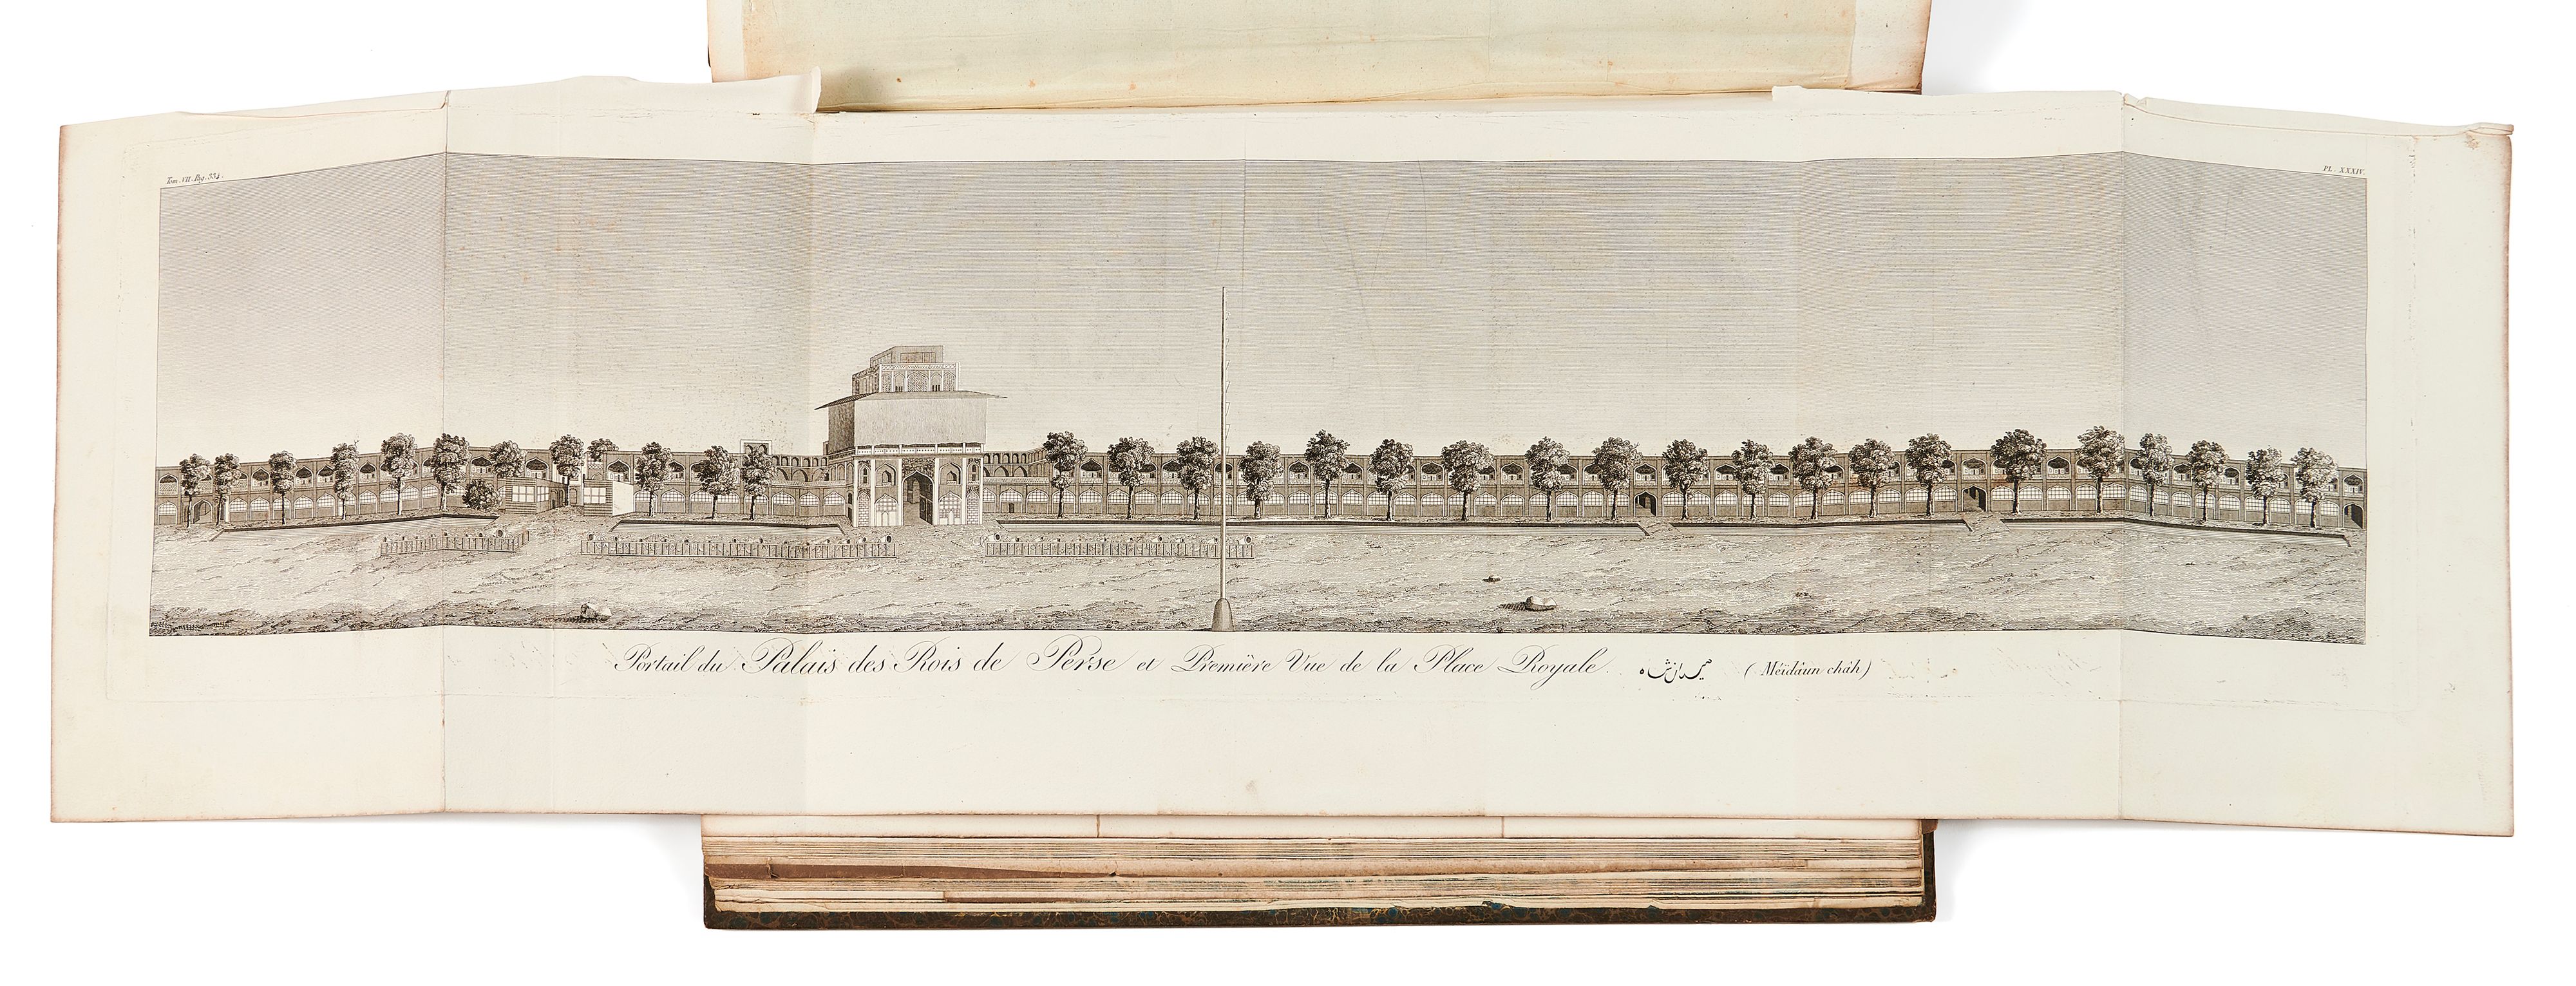 Tom. VII. Pag. 334.
Pl. XXXIV.
Portail du Palais des Rois de Perse et Première Vue de la Place Royale. میدان شاه (Meïdàun châh)